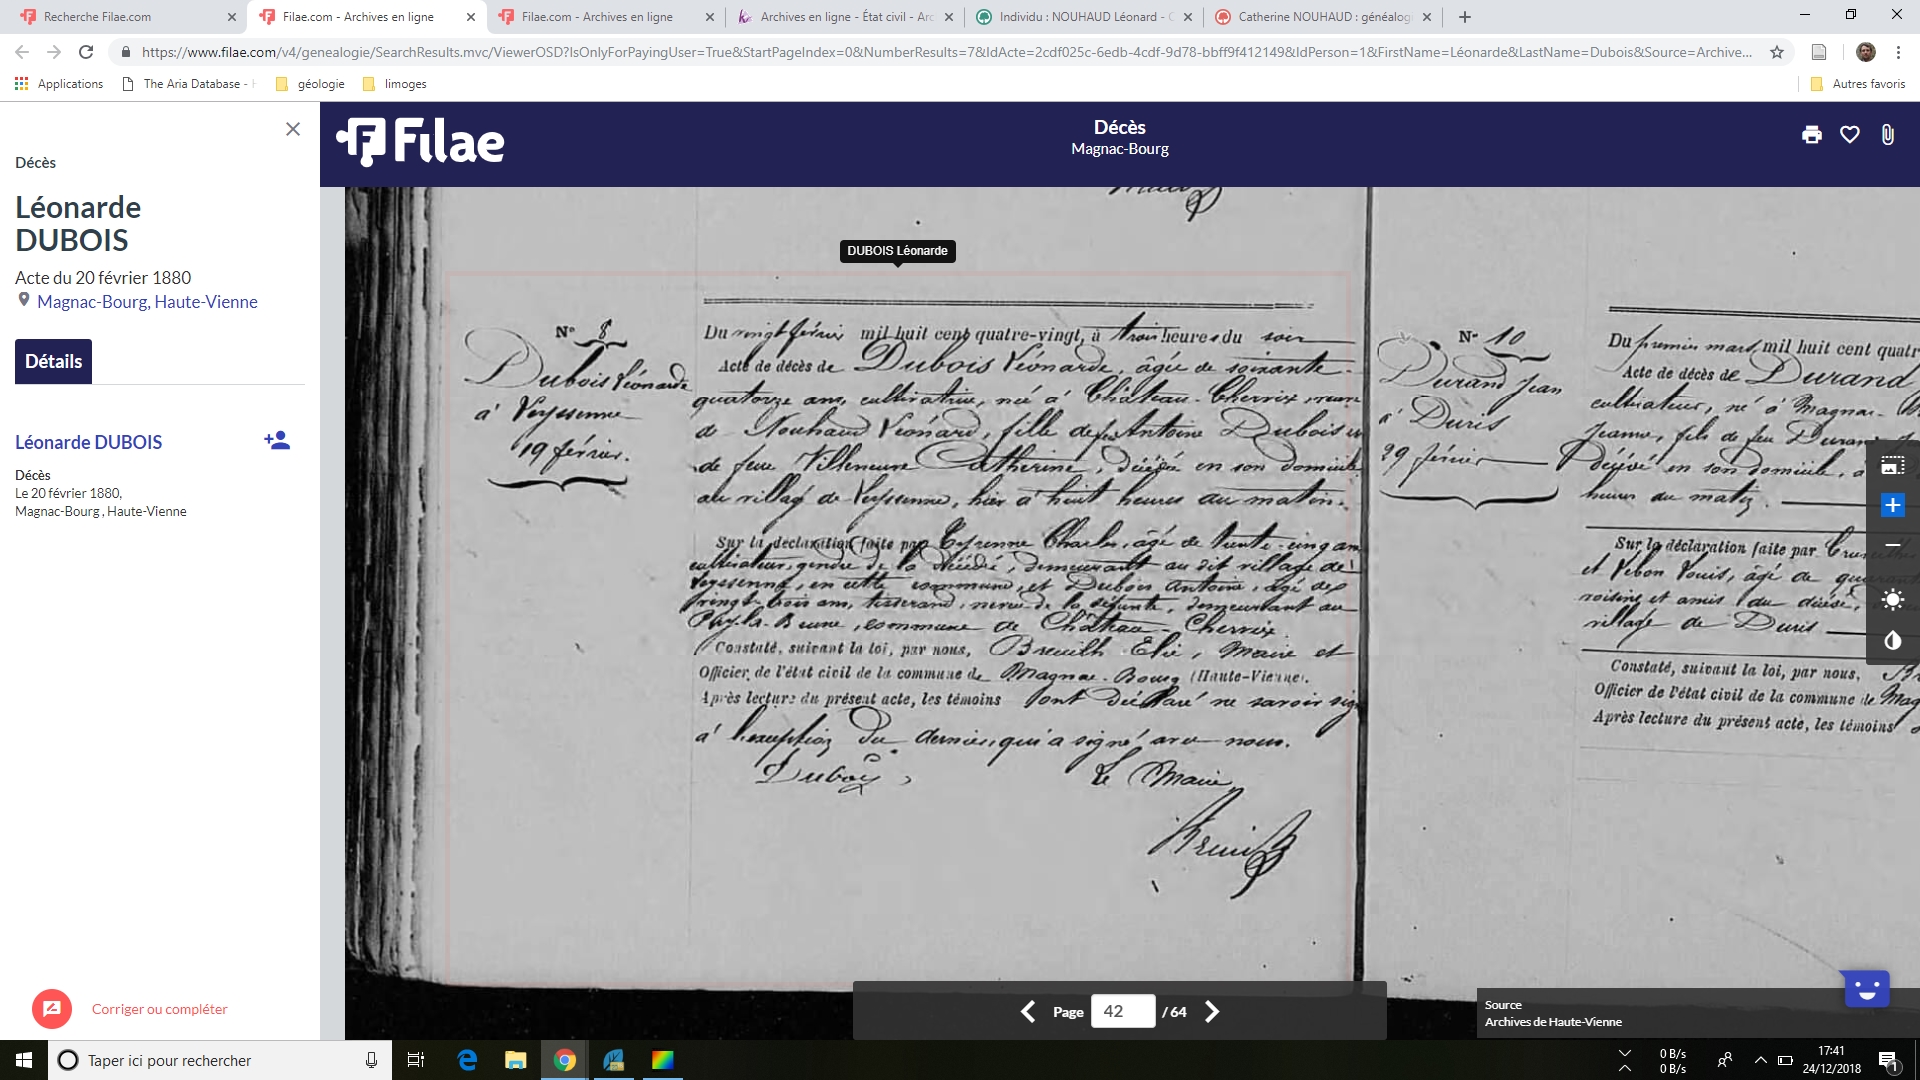 Recherche Filae.com
Filae.com - Archives en ligne
Filae.com - Archives en ligne
Archives en ligne - État civil - Arc
Individu : NOUHAUD Léonard - G
Catherine NOUHAUD : généalogi
https://www.filae.com/v4/genealogie/SearchResults.mvc/ViewerOSD?IsOnlyForPayingUser=True&StartPageIndex=0&NumberResults=7&IdActe=2cdf025c-6edb-4cdf-9d78-bbff9f412149&IdPerson=1&FirstName=Léonarde&LastName=Dubois&Source=Archive...
Applications
The Aria Database -
géologie
limoges
Autres favoris
Décès
Léonarde
DUBOIS
Acte du 20 février 1880
Magnac-Bourg, Haute-Vienne
Détails
Léonarde DUBOIS
Décès
Le 20 février 1880,
Magnac-Bourg , Haute-Vienne
Corriger ou compléter
Filae
Décès
Magnac-Bourg
DUBOIS Léonarde
N° 8
Dubois Léonarde
à Veyssenne
19 février.
Du vingt février mil huit cent quatre-vingt, à trois heures du soir
Acte de décès de Dubois Léonarde, âgée de soixante-
quatorze ans, cultivatrice, née à Château-Chervix, veuve
de Nouhaud Léonard, fille de feu Antoine Dubois et
de feue Villeneuve Catherine, décédée en son domicile
au village de Veyssenne, hier à huit heures du matin.
Sur la déclaration faite par Charles, âgé de trente-cinq ans
cultivateur, gendre de la décédée, demeurant au dit village de
Veyssenne, en cette commune, et Dubois Antoine, âgé de
vingt-trois ans, tisserand, neveu de la défunte, demeurant au
commune de Château-Chervix.
Constaté, suivant la loi, par nous, Breuilh Elie, Maire et
Officier de l'état civil de la commune de Magnac-Bourg (Haute-Vienne).
Après lecture du présent acte, les témoins ont déclaré ne savoir sig
à l'exception du dernier, qui a signé avec nous.
Duboy
Le Maire
Breuilh
N° 10
Durand Jean
à Duris
29 février
Du premier mars mil huit cent quatr
Acte de décès de Durand
cultivateur, né à Magnac-
Jeanne, fils de feu Durand
décédé en son domicile, a
heures du matin.
Sur la déclaration faite par
et Lebon Louis, âgé de
voisins et amis du décédé,
village de Duris
Constaté, suivant la loi, par nous, Br
Officier de l'état civil de la commune de Mag
Après lecture du présent acte, les témoins
Page 42 / 64
Source
Archives de Haute-Vienne
Taper ici pour rechercher
0 B/s
0 B/s
17:41
24/12/2018
1